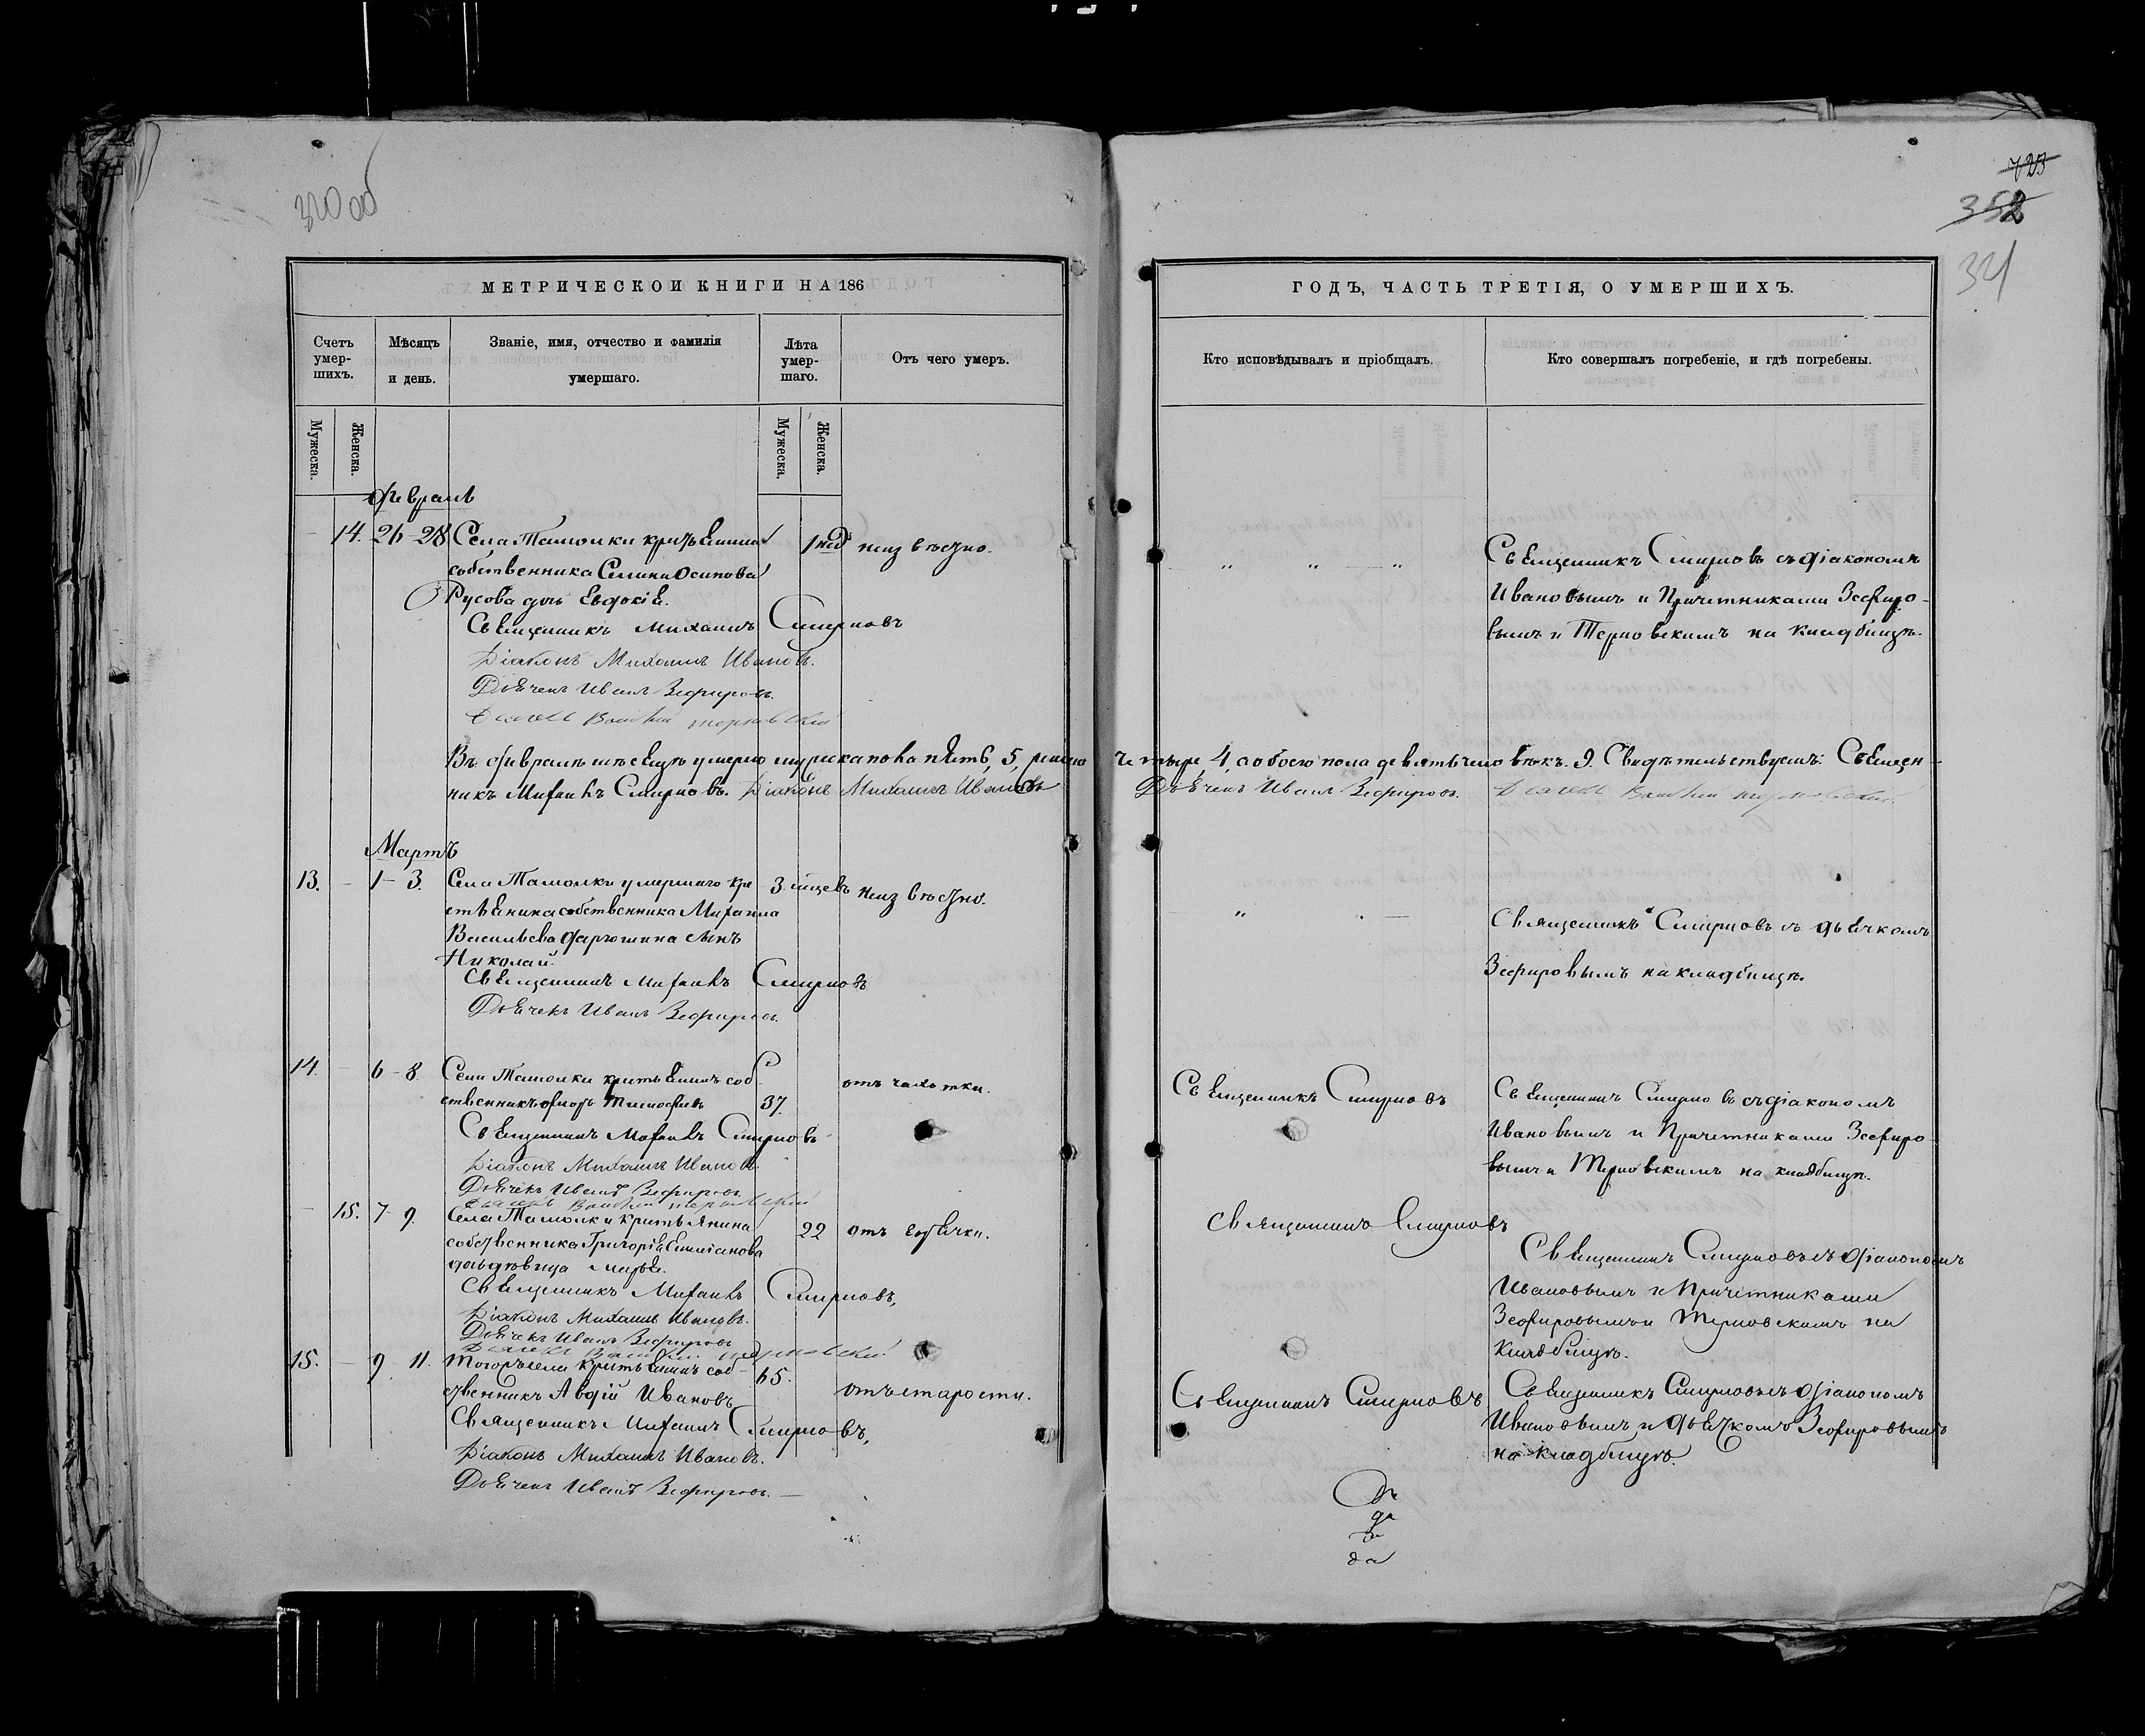 320 об
723
352
321
МЕТРИЧЕСКОЙ КНИГИ НА 186
Счетъ умер-шихъ.
Мѣсяцъ и день.
Званіе, имя, отчество и фамилія умершаго.
Лѣта умер-шаго.
Отъ чего умеръ.
Мужеска.
Женска.
Мужеска.
Женска.
Февраль
14. 26-28 Села Тамолки крестьянина 1 нед неизвѣстно.
собственника Семина Осипова
Русова дочь Евдокія.
Священникъ Михаилъ Смирновъ
Діаконъ Михаилъ Ивановъ.
Дьячекъ Иванъ Зефировъ.
Дьячекъ Терновскій
Въ Февралѣ мѣсяцѣ умерло мужска пола пять, 5,
никъ Михаилъ Смирновъ. Діаконъ Михаилъ Ивановъ
Мартъ
13. - 1-3. Села Тамолки умершаго кре 3. мѣсцев неизвѣстно.
стьянина собственника Михаила
Васильева сынъ
Николай.
Священникъ Михаилъ Смирновъ
Дьячекъ Иванъ Зефировъ.
14. - 6-8. Села Тамолки крестьянинъ соб- 37. отъ чахотки.
ственникъ Тимофеевъ
Священникъ Михаилъ Смирновъ
Діаконъ Михаилъ Ивановъ.
Дьячекъ Иванъ Зефировъ
Дьячекъ Терновскій
- 15. 7-9. Села Тамолки крестьянина 22 отъ горячки.
собственника Григорія Емельянова
дочь дѣвица Марья.
Священникъ Михаилъ Смирновъ,
Діаконъ Михаилъ Ивановъ.
Дьячекъ Иванъ Зефировъ
Дьячекъ Терновскій
15. - 9-11. Тогоже села крестьянинъ соб- 65. отъ старости.
ственникъ Авдій Ивановъ
Священникъ Михаилъ Смирновъ,
Діаконъ Михаилъ Ивановъ.
Дьячекъ Иванъ Зефировъ. —
ГОДЪ, ЧАСТЬ ТРЕТІЯ, О УМЕРШИХЪ.
Кто исповѣдывалъ и пріобщалъ.
Кто совершалъ погребеніе, и гдѣ погребены.
" " "
Священникъ Смирновъ съ діакономъ
Ивановымъ и Причетниками Зефиро-
вымъ и Терновскимъ на кладбищѣ.
четыре, 4, а обоего пола девять человѣкъ. 9. Свидѣтельствуемъ: Священ-
Дьячекъ Иванъ Зефировъ. Дьячекъ Терновскій.
" —
Священникъ Смирновъ съ дьячкомъ
Зефировымъ на кладбищѣ.
Священникъ Смирновъ
Священникъ Смирновъ съ діакономъ
Ивановымъ и Причетниками Зефиро-
вымъ и Терновскимъ на кладбищѣ.
Священникъ Смирновъ
Священникъ Смирновъ съ діакономъ
Ивановымъ и Причетниками
Зефировымъ и Терновскимъ на
кладбищѣ.
Священникъ Смирновъ
Священникъ Смирновъ съ діакономъ
Ивановымъ и дьячкомъ Зефировымъ
на кладбищѣ.